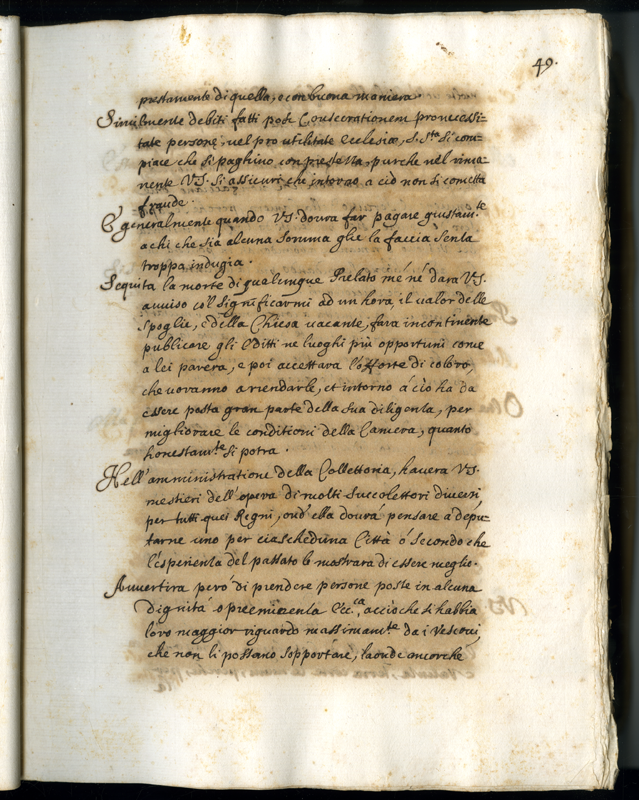 49.
prestamente di quella, e con buona maniera.
Similmente debiti fatti post Consecrationem pro necessi=
tate personę, vel pro utilitate ecclesiæ, S. S.ta si com=
piace che si paghino con prestezza, purche nel rima=
nente VS. si assicuri che intorno a ciò non si cometta
fraude.
E generalmente quando VS. dovra far pagare giustam.te
a chi che sia alcuna somma glie la faccia senza
troppa indugia.
Sequita la morte di qualunque Prelato me ne darà VS.
avviso co'l significarmi ad un hora, il valor delle
spoglie, e della Chiesa vacante, farà incontinente
publicare gli Editti ne luoghi più opportuni come
a lei parera, e poi accettara l'offerte di coloro,
che voranno arrendarle, et intorno à ciò ha da
essere posta gran parte della sua diligenza, per
migliorare le conditioni della Camera, quanto
honestam.te si potra.
Nell'amministratione della Collettoria, havera VS.
mestieri dell'opera di molti succolettori diversi,
per tutti quei Regni, ond'ella dourà pensare a depu=
tarne uno per ciascheduna Città ò secondo che
l'esperienza del passato le mostrarà di essere meglio.
Avvertira però di prendere persone poste in alcuna
dignità o preeminenza Ecc.ca, acciò che si habbia
loro maggior riguardo massimam.te da i Vescovi
che non li possano sopportare, laonde ancorche